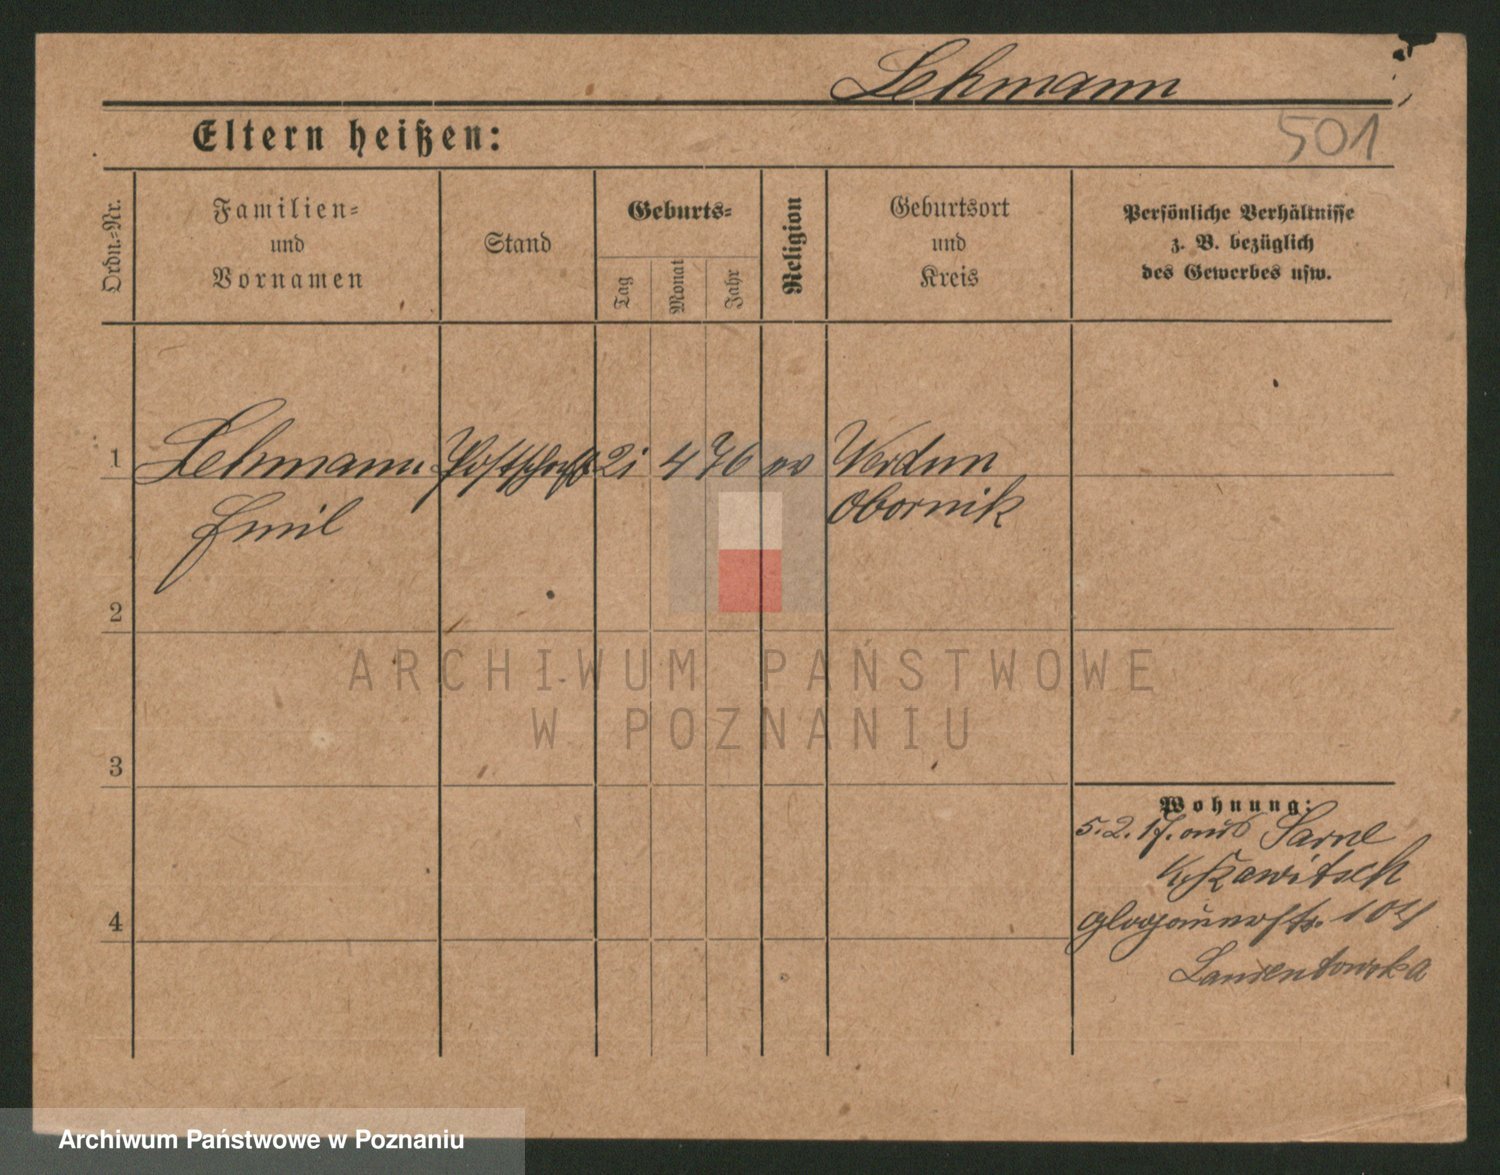 Lehmann
Eltern heißen:
501
Ordn.-Nr.
Familien-
und
Vornamen
Stand
Geburts-
Tag
Monat
Jahr
Religion
Geburtsort
und
Kreis
Persönliche Verhältnisse
z. B. bezüglich
des Gewerbes usw.
1
Lehmann 21 4 76 ev Werdun
Emil
Obornik
2
ARCHIWUM PAŃSTWOWE
W POZNANIU
3
Wohnung:
5.2.17. aus Sarne
K. Rawitsch
Glogauerstr. 104
4
Archiwum Państwowe w Poznaniu